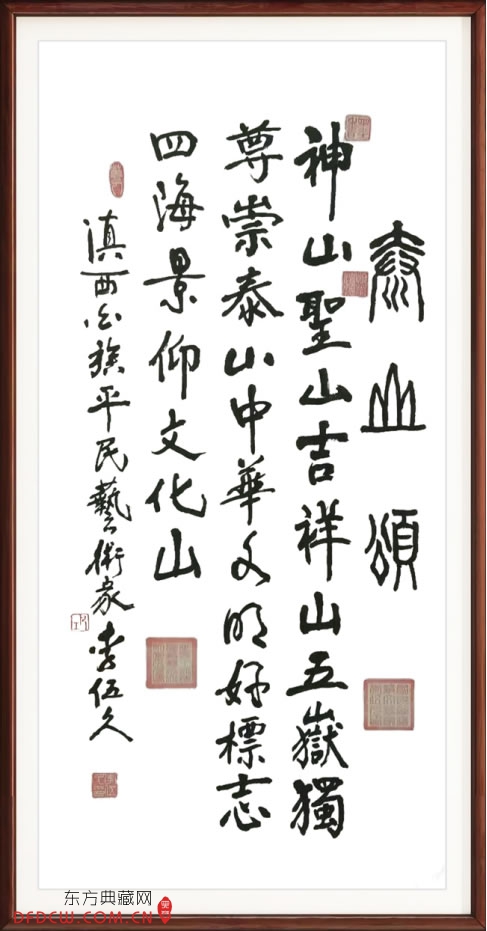 泰山頌
神山聖山吉祥山五嶽獨
尊崇泰山中華文明好標志
四海景仰文化山
滇西白族平民藝術家李伍久
东方典藏网
DFDCW.COM.CN